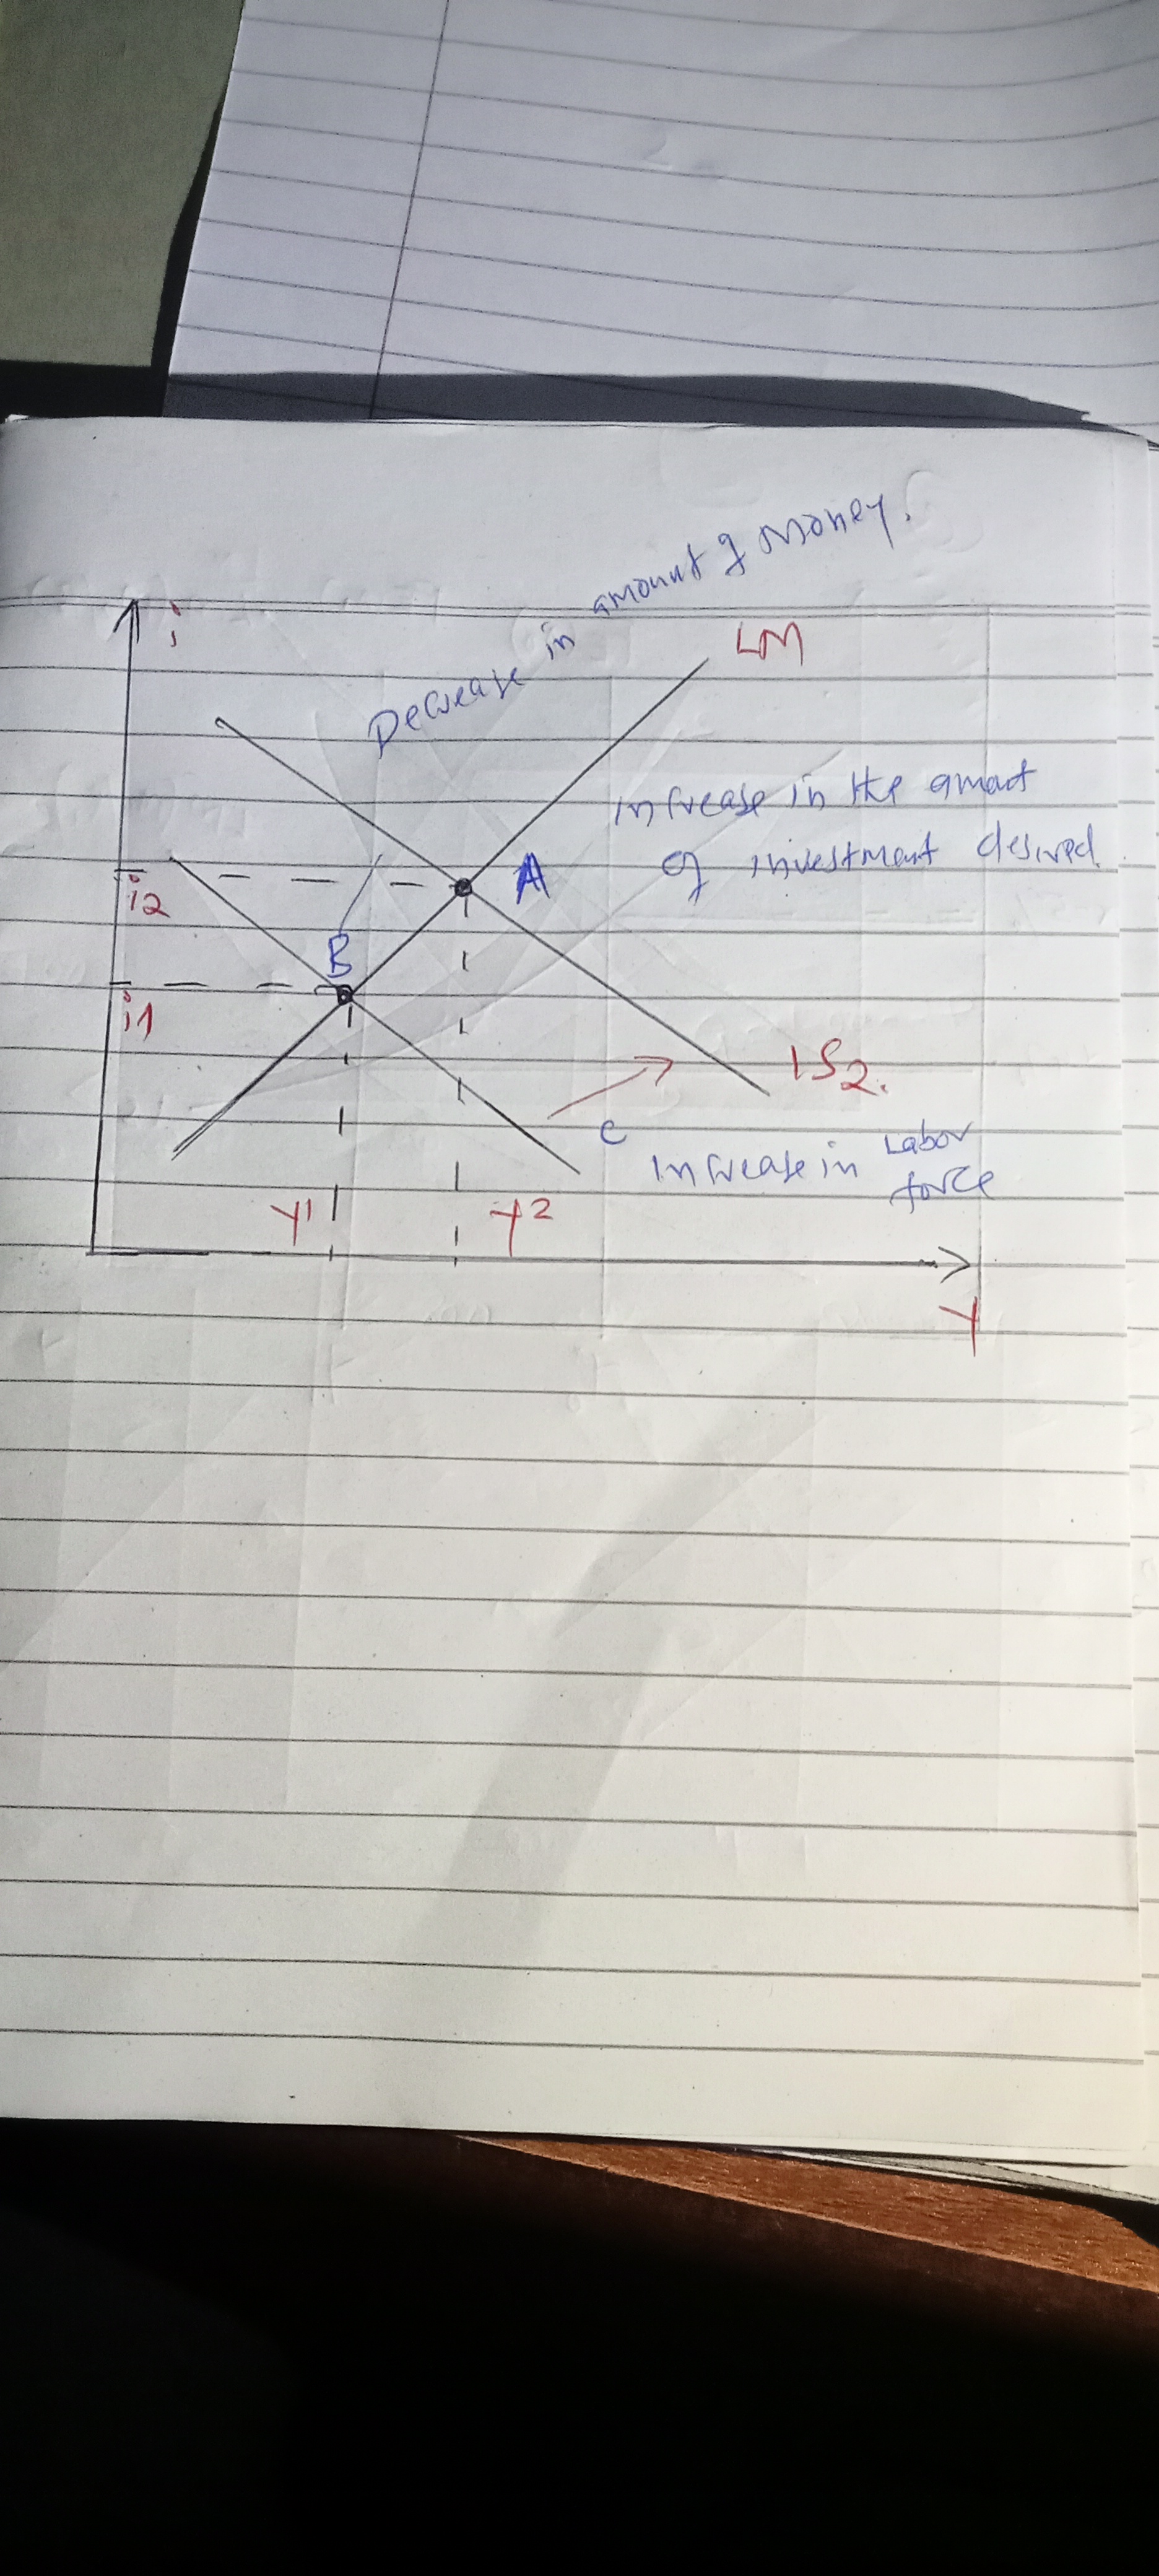 Decrease in amount of money.
i
LM
Increase in the amout
of investment desired.
A
i2
B
i1
IS2.
C
Increase in Labor
force
Y1
Y2
Y